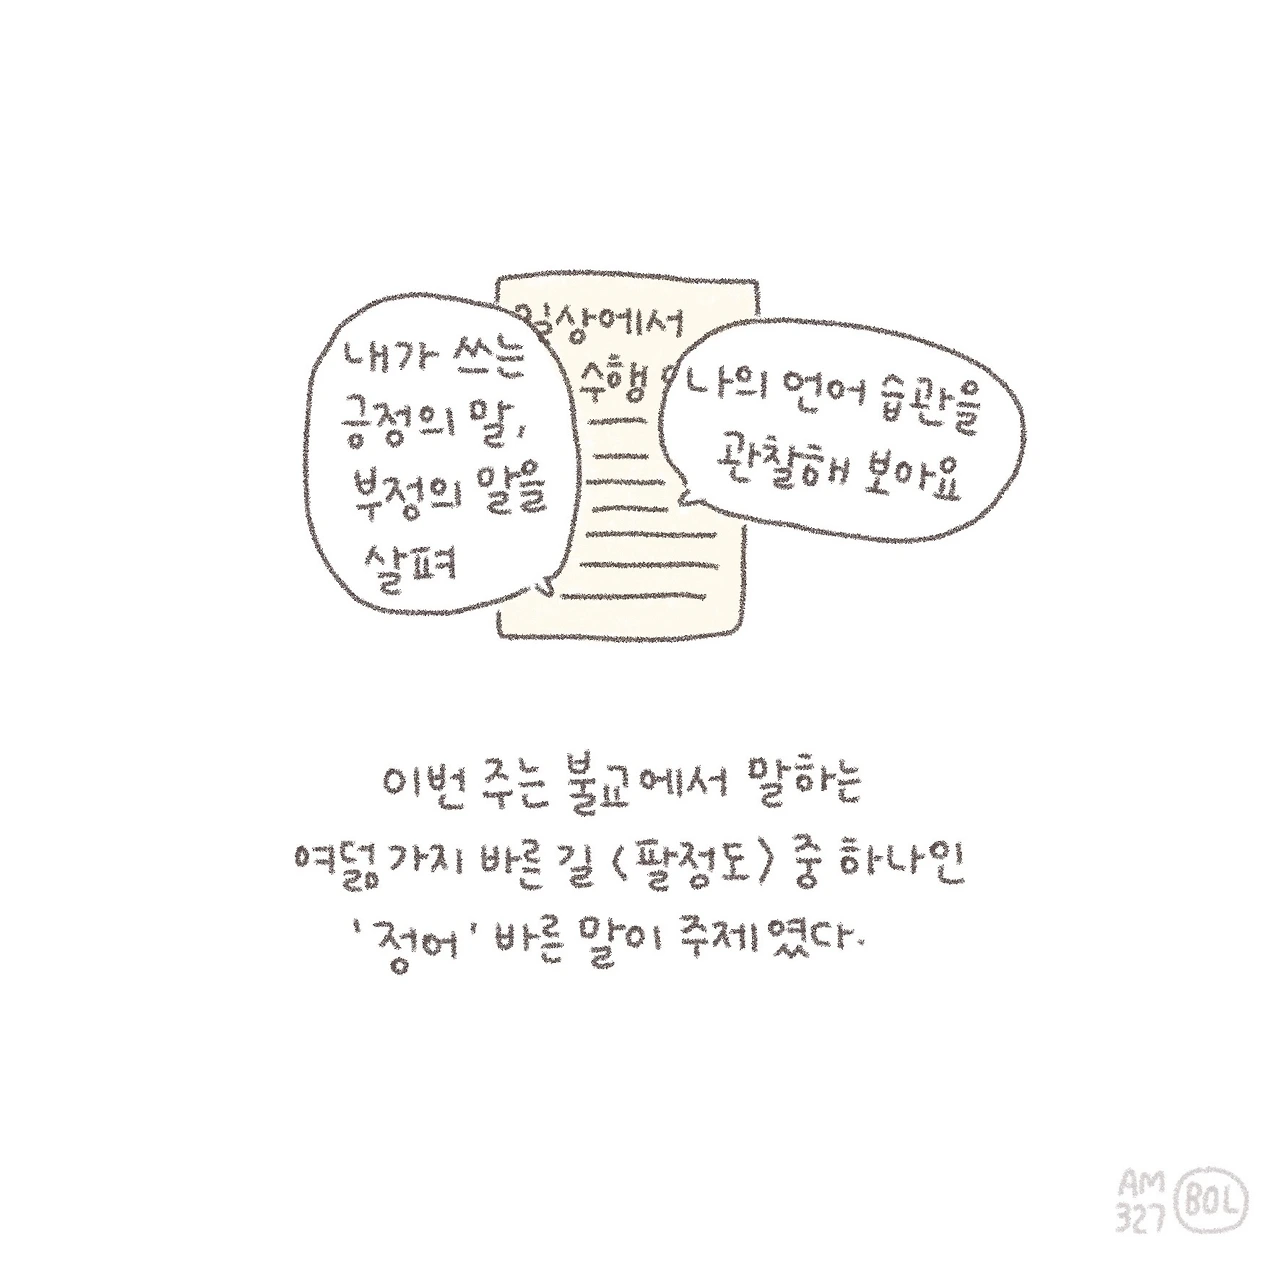 일상에서
수행
내가 쓰는
긍정의 말,
부정의 말을
살펴
나의 언어 습관을
관찰해 보아요
이번 주는 불교에서 말하는
여덟 가지 바른 길 <팔정도> 중 하나인
'정어' 바른 말이 주제였다.
AM
327
BOL